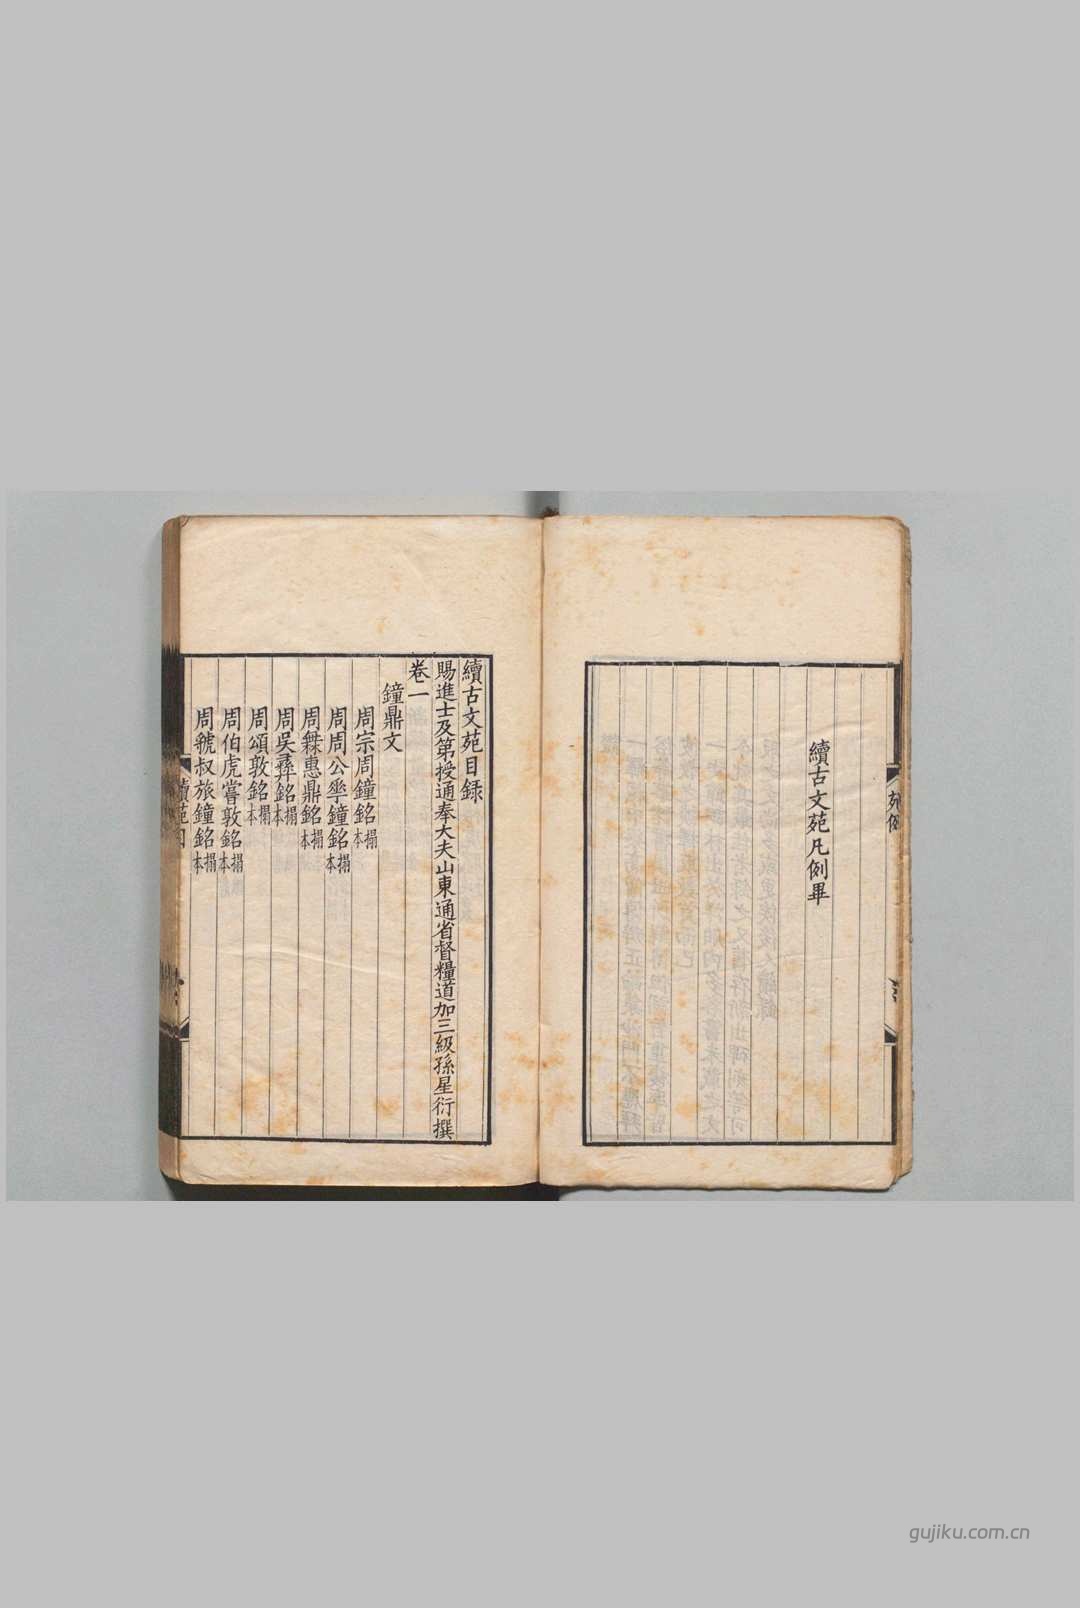 續古文苑凡例畢
續古文苑目録
賜進士及第授通奉大夫山東通省督糧道加三級孫星衍撰
卷一
鐘鼎文
周宗周鐘銘搨本
周周公華鐘銘搨本
周惠鼎銘搨本
周吳彝銘搨本
周頌敦銘搨本
周伯虎嘗敦銘搨本
周虢叔旅鐘銘搨本
gujiku.com.cn